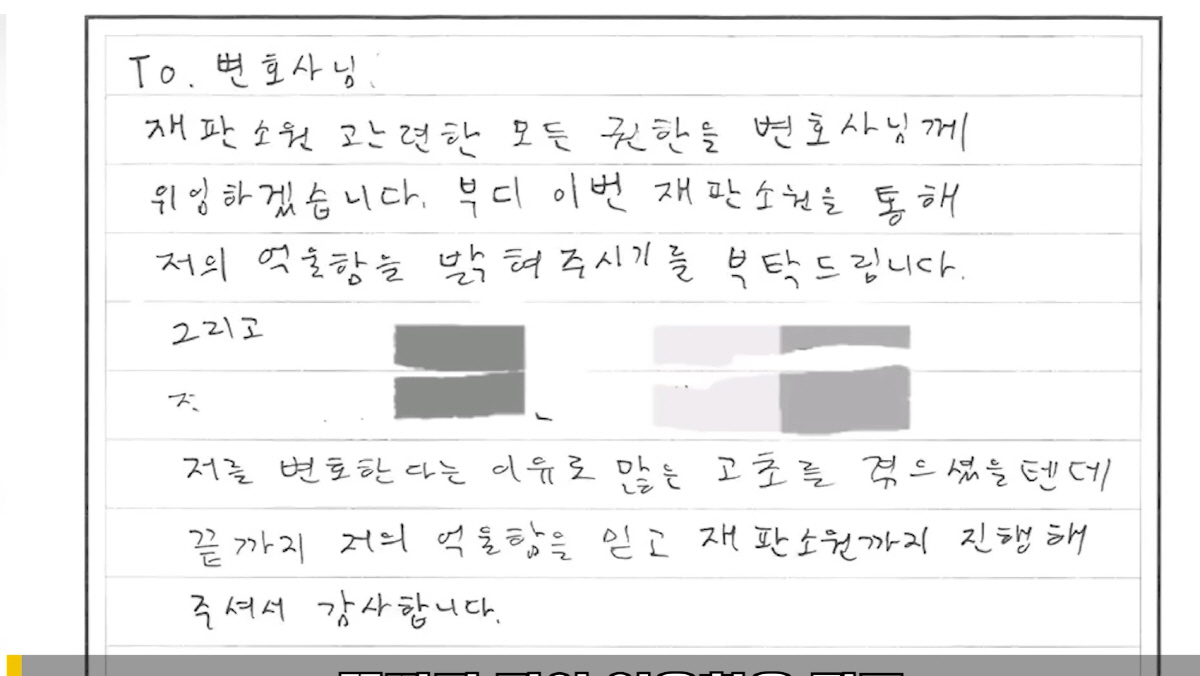 To. 변호사님.
재판소원 관련한 모든 권한을 변호사님께
위임하겠습니다. 부디 이번 재판소원을 통해
저의 억울함을 밝혀주시기를 부탁드립니다.
그리고
저를 변호한다는 이유로 많은 고초를 겪으셨을텐데
끝까지 저의 억울함을 믿고 재판소원까지 진행해
주셔서 감사합니다.